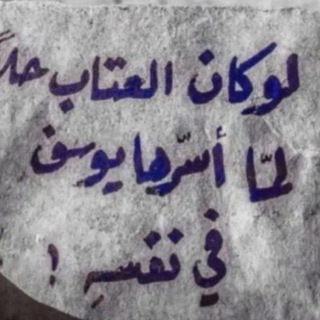 لو كان العتاب حلاً
لمّا أسرّها يوسف
في نفسهِ !